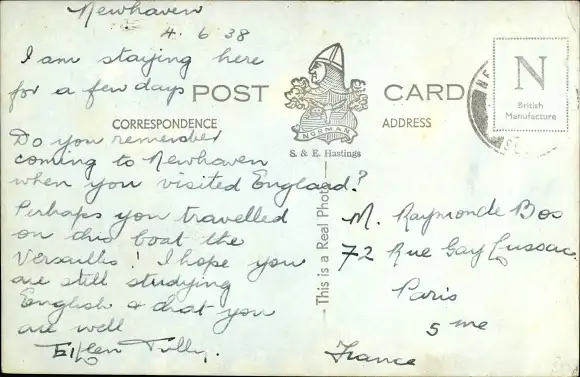 Newhaven
4. 6 38
I am staying here
for a few days
Do you remember
coming to Newhaven
when you visited England?
Perhaps you travelled
on this boat the
Versailles! I hope you
are still studying
English & that you
are well
Tully.
POST CARD
CORRESPONDENCE
ADDRESS
NORMAN
S. & E. Hastings
This is a Real Photo
N
British
Manufacture
M. Raymonde Bos
72 Rue Gay Lussac
Paris
5 me
France